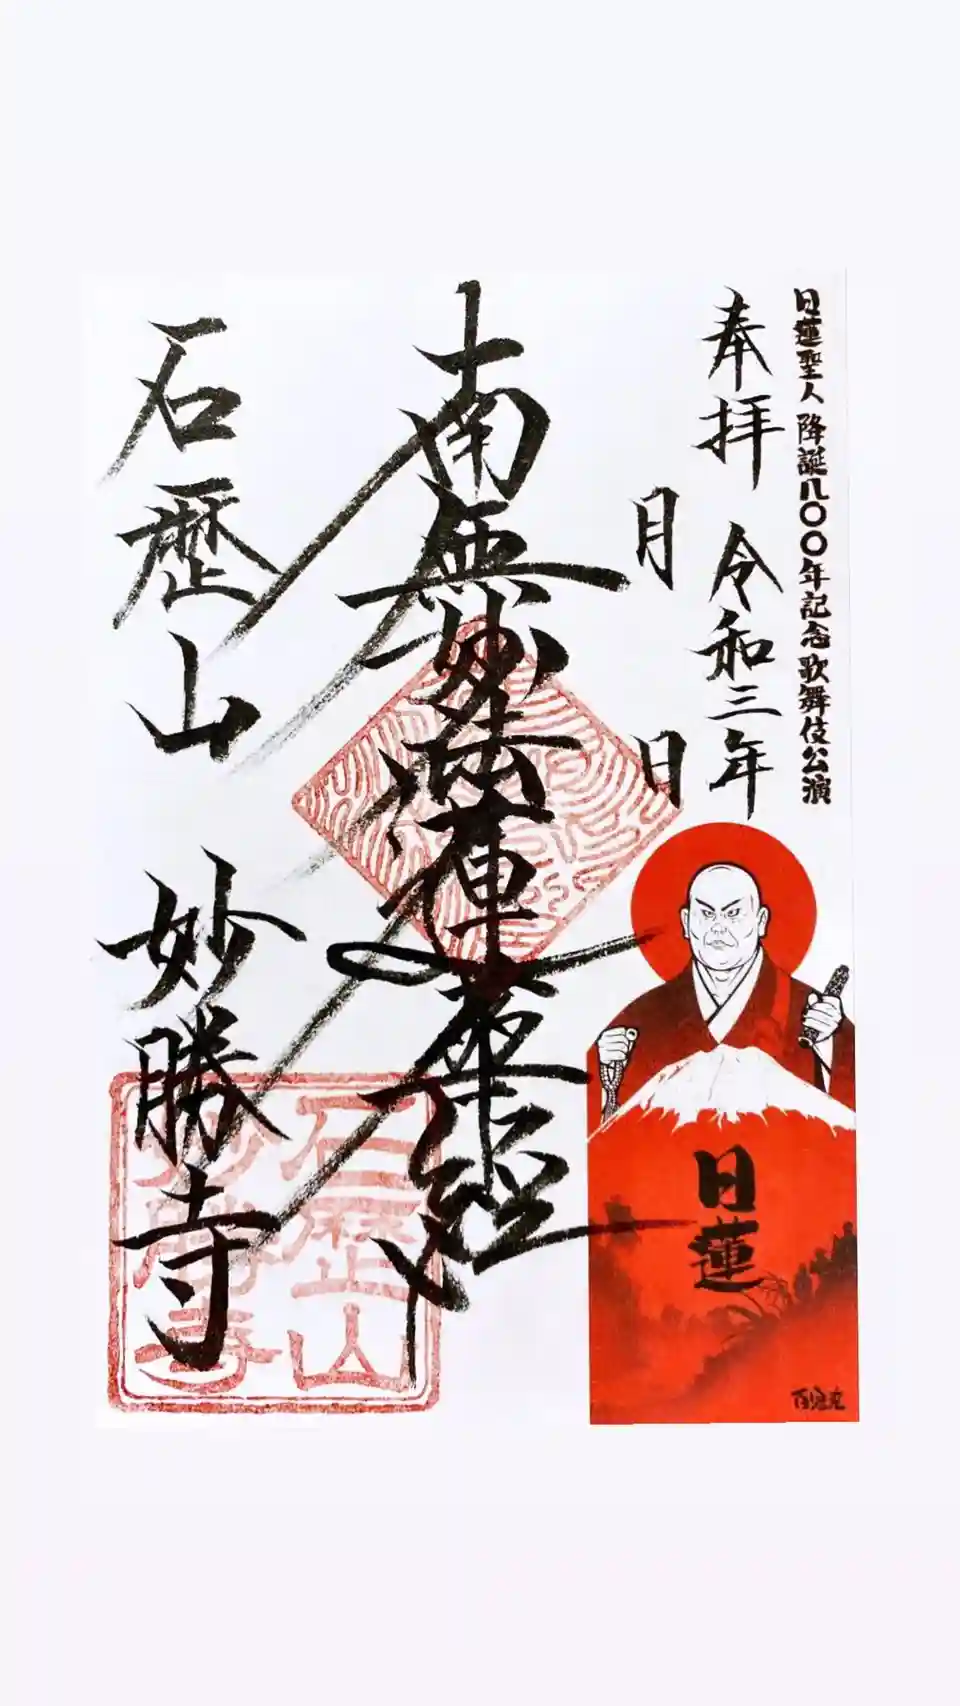 日蓮聖人 降誕八〇〇年記念歌舞伎公演
奉拝 令和三年
月 日
南無妙法蓮華経
石歴山 妙勝寺
石歴山
妙勝寺
日蓮